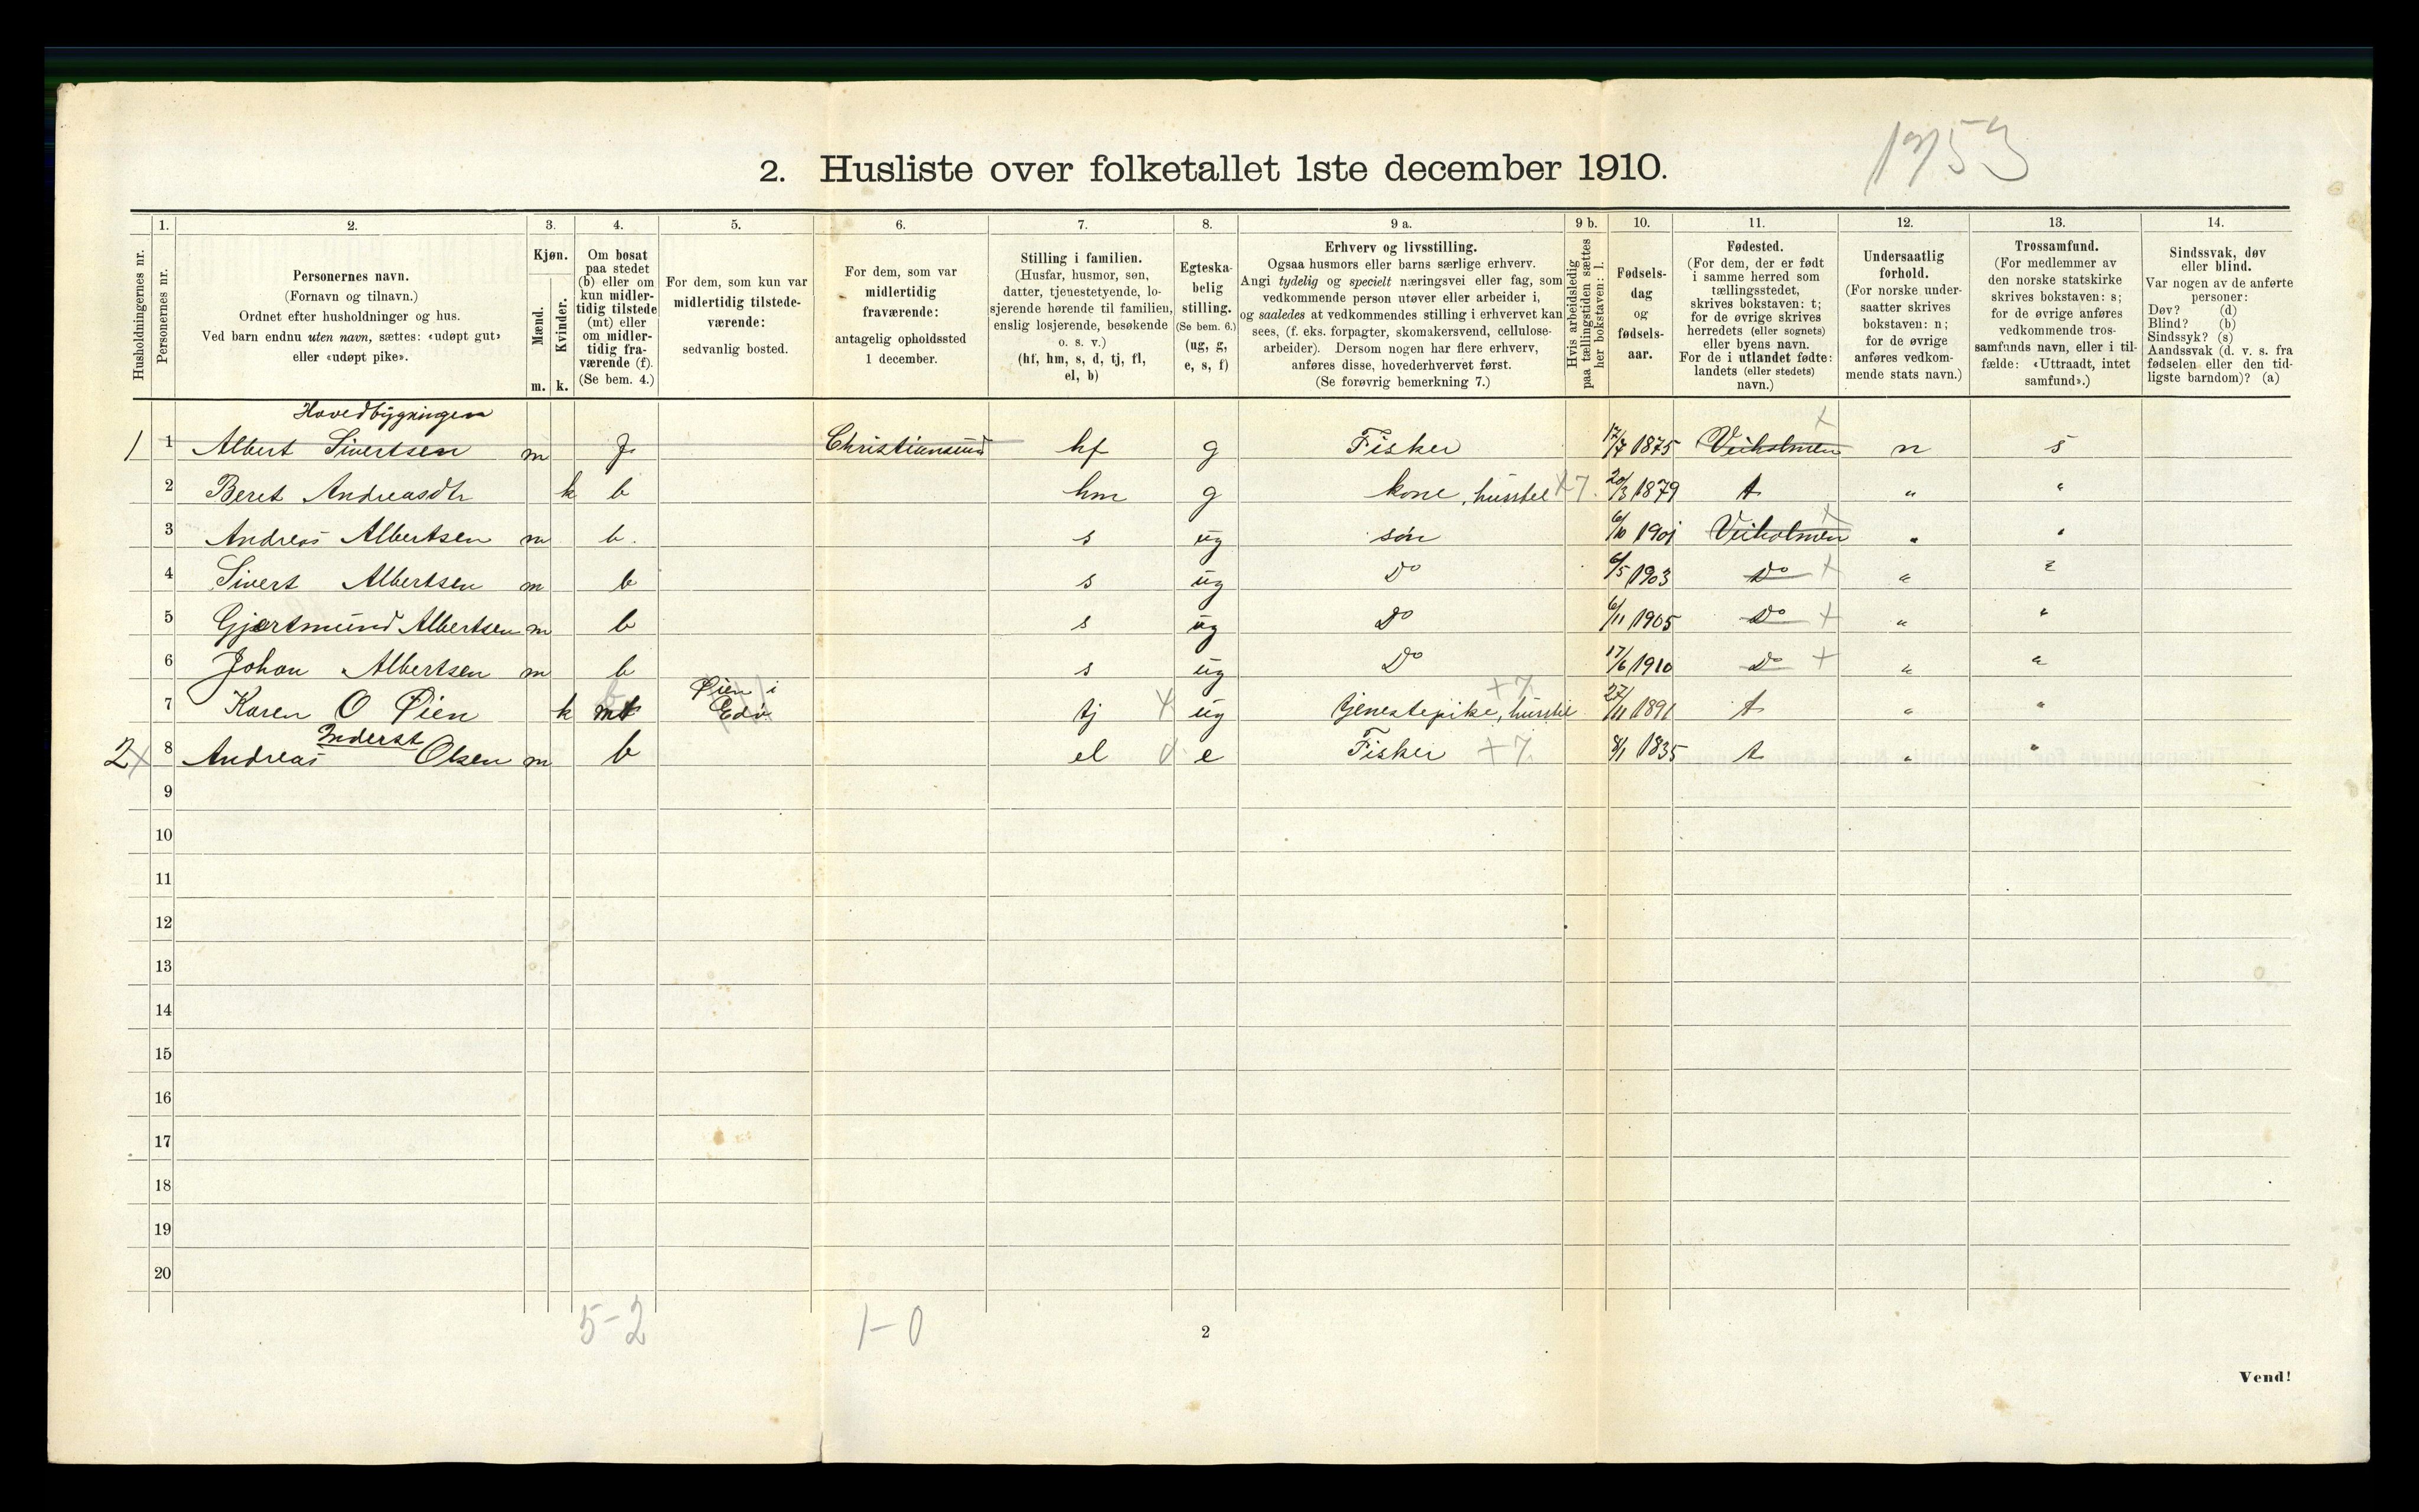 1753
2. Husliste over folketallet 1ste december 1910.
1. 2. 3. 4. 5. 6. 7. 8. 9 a. 9 b. 10. 11. 12. 13. 14.
Husholdningernes nr.
Personernes nr.
Personernes navn.
(Fornavn og tilnavn.)
Ordnet efter husholdninger og hus.
Ved barn endnu uten navn, sættes: «udøpt gut»
eller «udøpt pike».
Kjøn.
Mænd.
Kvinder.
m. k.
Om bosat
paa stedet
(b) eller om
kun midler-
tidig tilstede
(mt) eller
om midler-
tidig fra-
værende (f).
(Se bem. 4.)
For dem, som kun var
midlertidig tilstede-
værende:
sedvanlig bosted.
For dem, som var
midlertidig
fraværende:
antagelig opholdssted
1 december.
Stilling i familien.
(Husfar, husmor, søn,
datter, tjenestetyende, lo-
sjerende hørende til familien,
enslig losjerende, besøkende
o. s. v.)
(hf, hm, s, d, tj, fl,
el, b)
Egteska-
belig
stilling.
(Se bem. 6.)
(ug, g,
e, s, f)
Erhverv og livsstilling.
Ogsaa husmors eller barns særlige erhverv.
Angi tydelig og specielt næringsvei eller fag, som
vedkommende person utøver eller arbeider i,
og saaledes at vedkommendes stilling i erhvervet kan
sees, (f. eks. forpagter, skomakersvend, cellulose-
arbeider). Dersom nogen har flere erhverv,
anføres disse, hovederhvervet først.
(Se forøvrig bemerkning 7.)
Hvis arbeidsledig
paa tællingstiden sættes
her bokstaven: l.
Fødsels-
dag
og
fødsels-
aar.
Fødested.
(For dem, der er født
i samme herred som
tællingsstedet,
skrives bokstaven: t;
for de øvrige skrives
herredets (eller sognets)
eller byens navn.
For de i utlandet fødte:
landets (eller stedets)
navn.)
Undersaatlig
forhold.
(For norske under-
saatter skrives
bokstaven: n;
for de øvrige
anføres vedkom-
mende stats navn.)
Trossamfund.
(For medlemmer av
den norske statskirke
skrives bokstaven: s;
for de øvrige anføres
vedkommende tros-
samfunds navn, eller i til-
fælde: «Uttraadt, intet
samfund».)
Sindssvak, døv
eller blind.
Var nogen av de anførte
personer:
Døv? (d)
Blind? (b)
Sindssyk? (s)
Aandssvak (d. v. s. fra
fødselen eller den tid-
ligste barndom)? (a)
Hovedbygningen
1 1 Albert Sivertsen m f Christiansund hf g Fisker 17/7 1875 Veiholmen n s
2 Beret Andreasdtr k b hm g kone, husstel +7. 20/3 1879 t " "
3 Andreas Albertsen m b. s ug søn 6/10 1901 Veiholmen " "
4 Sivert Albertsen m b s ug Do 6/5 1903 Do + " "
5 Gjertmund Albertsen m b s ug Do 6/11 1905 Do + " "
6 Johan Albertsen m b s ug Do 17/6 1910 Do + " "
Øien i +7.
7 Karen O Øien k mt b Edø tj ug tjenestepike, husstel 27/11 1891 t " "
Inderst
2 8 Andreas Olsen m b el e Fisker +7. 8/1 1835 t " "
9
10
11
12
13
14
15
16
17
18
19
20
5-2 1-0
2
Vend!